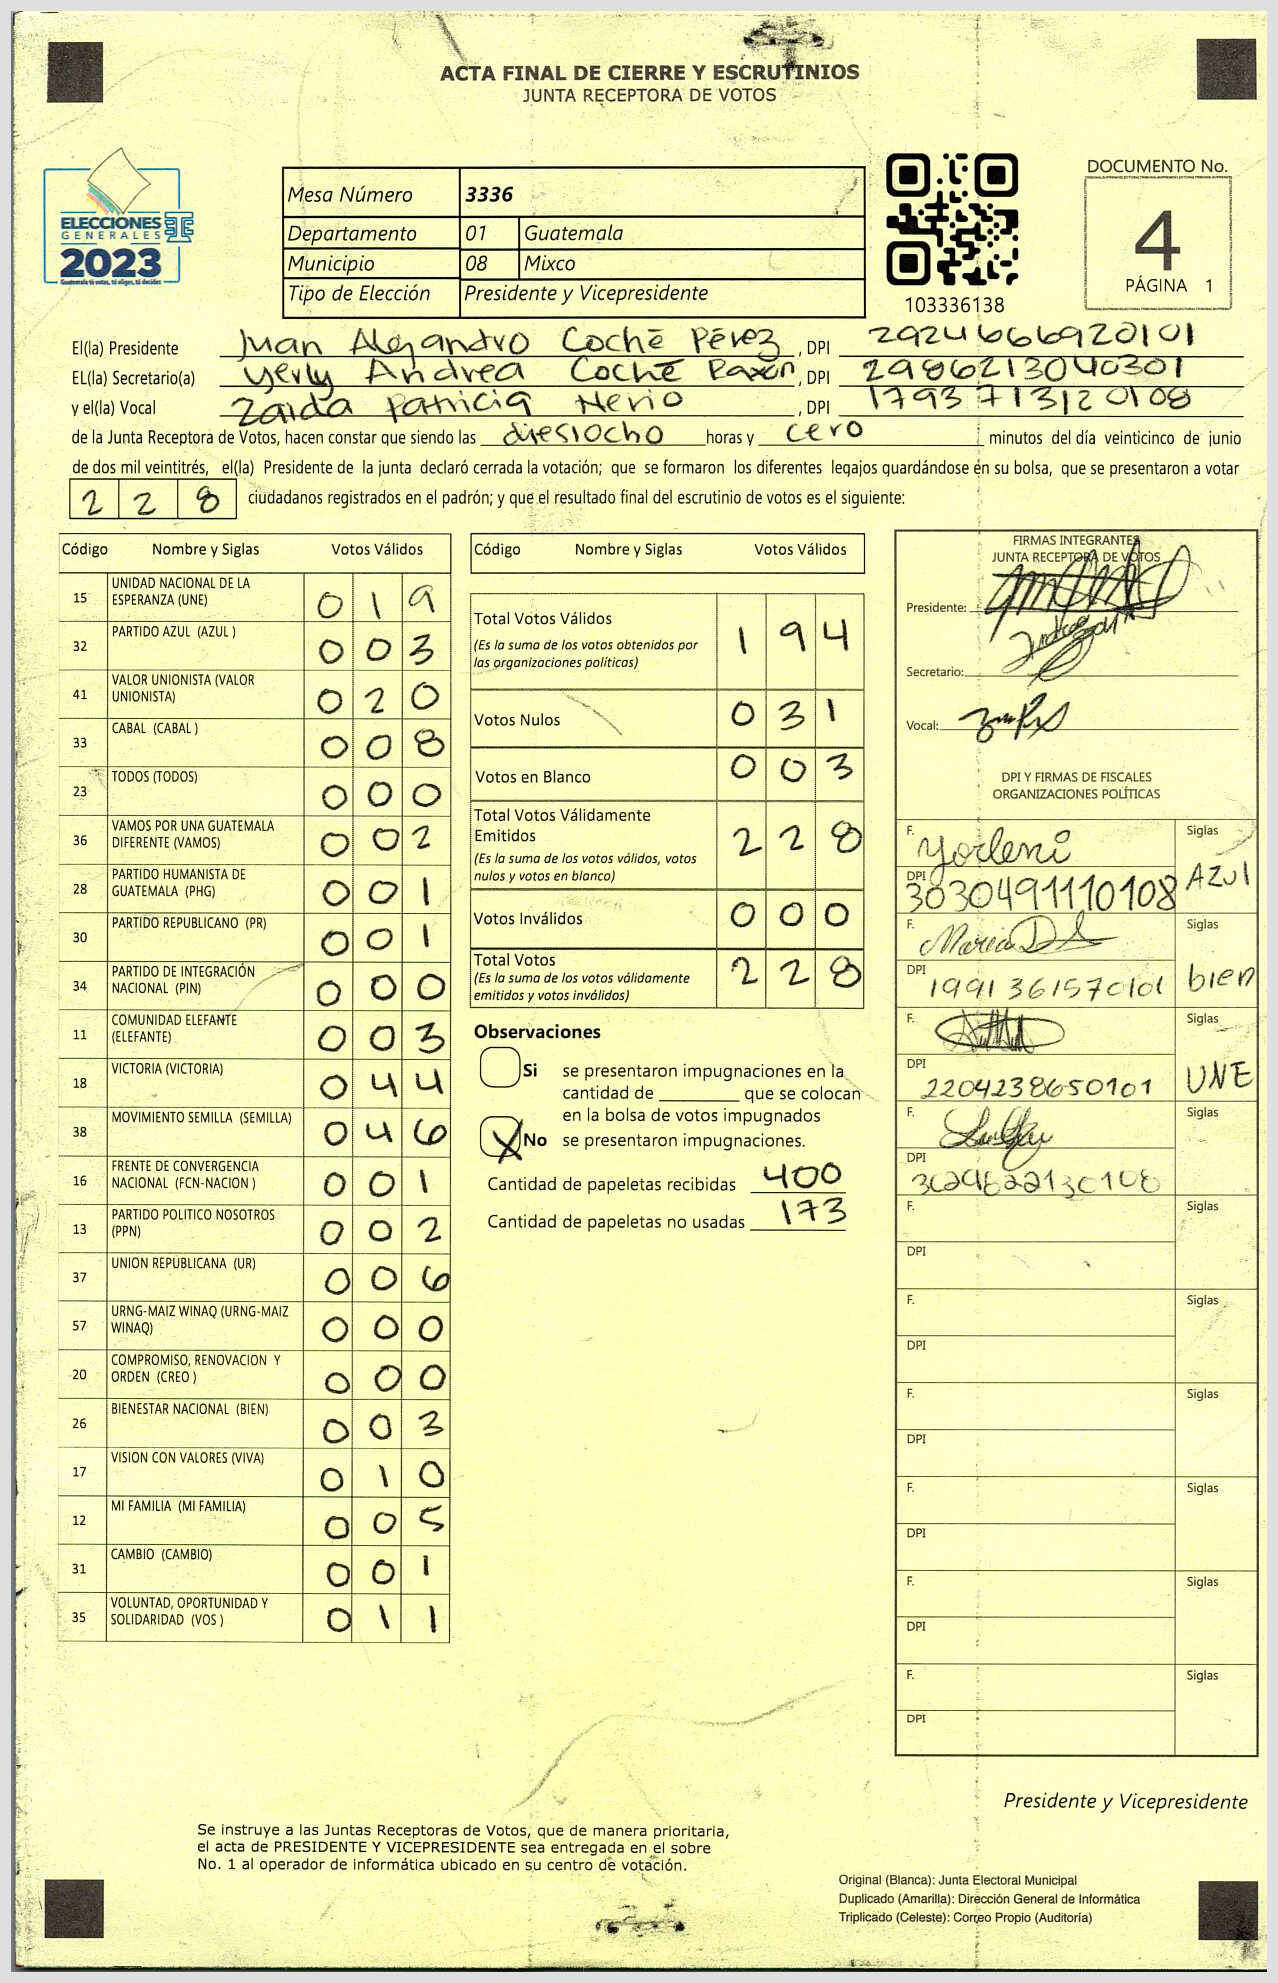 ACTA FINAL DE CIERRE Y ESCRUTINIOS
JUNTA RECEPTORA DE VOTOS
ELECCIONES
GENERALES
2023
Guatemala tú votas, tú eliges, tú decides
Mesa Número 3336
Departamento 01 Guatemala
Municipio 08 Mixco
Tipo de Elección Presidente y Vicepresidente
103336138
DOCUMENTO No.
4
PÁGINA 1
El(la) Presidente Juan Alejandro Coché Pérez, DPI 2924666920101
EL(la) Secretario(a) Yerly Andrea Coché Raxón, DPI 2986213040301
y el(la) Vocal Zaida Patricia Nerio, DPI 1793713120108
de la Junta Receptora de Votos, hacen constar que siendo las diesiocho horas y cero minutos del día veinticinco de junio
de dos mil veintitrés, el(la) Presidente de la junta declaró cerrada la votación; que se formaron los diferentes legajos guardándose en su bolsa, que se presentaron a votar
2 2 8 ciudadanos registrados en el padrón; y que el resultado final del escrutinio de votos es el siguiente:
Código Nombre y Siglas Votos Válidos
15 UNIDAD NACIONAL DE LA ESPERANZA (UNE) 0 1 9
32 PARTIDO AZUL (AZUL ) 0 0 3
41 VALOR UNIONISTA (VALOR UNIONISTA) 0 2 0
33 CABAL (CABAL ) 0 0 8
23 TODOS (TODOS) 0 0 0
36 VAMOS POR UNA GUATEMALA DIFERENTE (VAMOS) 0 0 2
28 PARTIDO HUMANISTA DE GUATEMALA (PHG) 0 0 1
30 PARTIDO REPUBLICANO (PR) 0 0 1
34 PARTIDO DE INTEGRACIÓN NACIONAL (PIN) 0 0 0
11 COMUNIDAD ELEFANTE (ELEFANTE) 0 0 3
18 VICTORIA (VICTORIA) 0 4 4
38 MOVIMIENTO SEMILLA (SEMILLA) 0 4 6
16 FRENTE DE CONVERGENCIA NACIONAL (FCN-NACION ) 0 0 1
13 PARTIDO POLITICO NOSOTROS (PPN) 0 0 2
37 UNION REPUBLICANA (UR) 0 0 6
57 URNG-MAIZ WINAQ (URNG-MAIZ WINAQ) 0 0 0
20 COMPROMISO, RENOVACION Y ORDEN (CREO ) 0 0 0
26 BIENESTAR NACIONAL (BIEN) 0 0 3
17 VISION CON VALORES (VIVA) 0 1 0
12 MI FAMILIA (MI FAMILIA) 0 0 5
31 CAMBIO (CAMBIO) 0 0 1
35 VOLUNTAD, OPORTUNIDAD Y SOLIDARIDAD (VOS ) 0 1 1
Código Nombre y Siglas Votos Válidos
Total Votos Válidos 1 9 4
(Es la suma de los votos obtenidos por
las organizaciones políticas)
Votos Nulos 0 3 1
Votos en Blanco 0 0 3
Total Votos Válidamente
Emitidos 2 2 8
(Es la suma de los votos válidos, votos
nulos y votos en blanco)
Votos Inválidos 0 0 0
Total Votos 2 2 8
(Es la suma de los votos válidamente
emitidos y votos inválidos)
Observaciones
Si se presentaron impugnaciones en la
cantidad de ________ que se colocan
en la bolsa de votos impugnados
X No se presentaron impugnaciones.
Cantidad de papeletas recibidas 400
Cantidad de papeletas no usadas 173
FIRMAS INTEGRANTES
JUNTA RECEPTORA DE VOTOS
Presidente:
Secretario:
Vocal:
DPI Y FIRMAS DE FISCALES
ORGANIZACIONES POLÍTICAS
F. Yorleni Siglas
DPI 3030491110108 AZul
F. Maria Siglas
DPI 1991361570101 bien
F. Siglas
DPI 2204238650101 UNE
F. Siglas
DPI
F. Siglas
DPI
F. Siglas
DPI
F. Siglas
DPI
F. Siglas
DPI
F. Siglas
DPI
F. Siglas
DPI
Presidente y Vicepresidente
Se instruye a las Juntas Receptoras de Votos, que de manera prioritaria,
el acta de PRESIDENTE Y VICEPRESIDENTE sea entregada en el sobre
No. 1 al operador de informática ubicado en su centro de votación.
Original (Blanca): Junta Electoral Municipal
Duplicado (Amarilla): Dirección General de Informática
Triplicado (Celeste): Correo Propio (Auditoría)